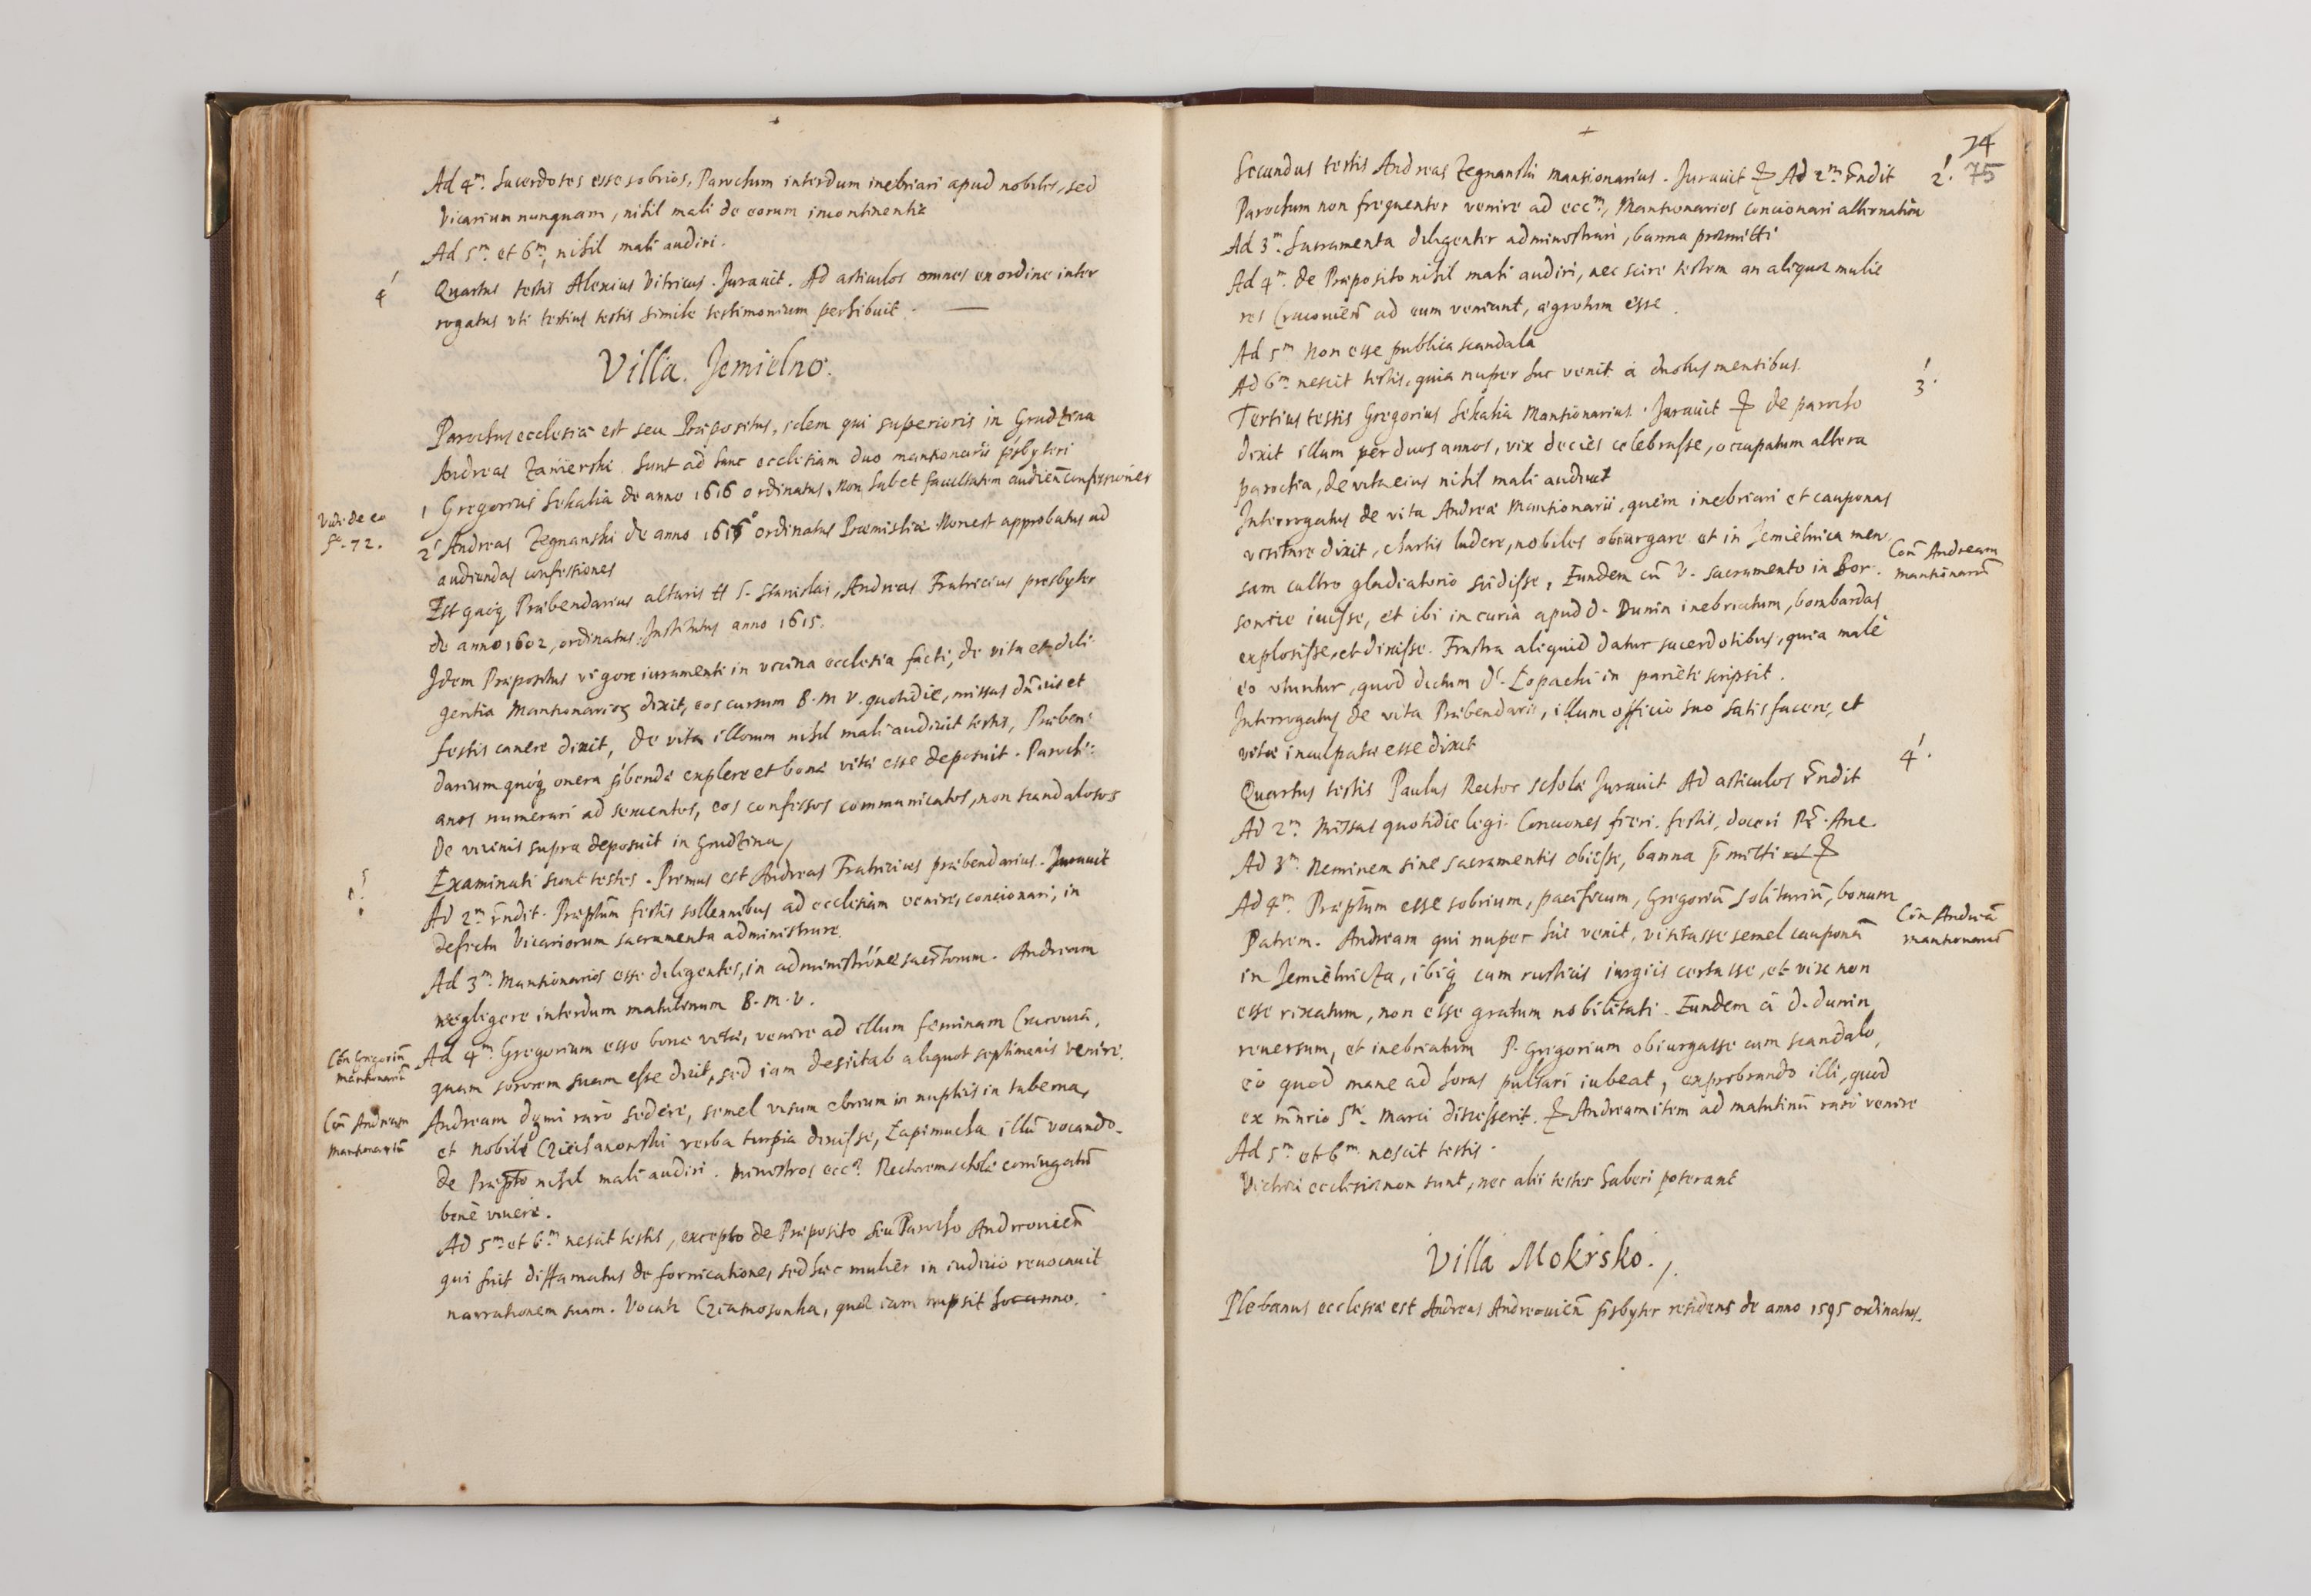 Ad 4m. Sacerdotes esse sobrios, Parochum interdum inebriari apud nobiles, sed
Vicarium nunquam, nihil mali de eorum incontinentia
Ad 5m. et 6m, nihil mali audiri.
4
Quartus testis Alexius Vitricus. Juravit. Ad articulos omnes ex ordine inter
rogatus uti tertius testis simile testimonium perhibuit.
Villa. Jemielno.
Parochus ecclesiæ est seu Præpositus, idem qui superioris in Grudzina
Andreas Zanierski. Sunt ad hanc ecclesiam duo mansionarii p̃sbyteri
1 Gregorius Sekalia de anno 1616 ordinatus. Non habet facultatem audieñ confessiones
Vide de eo
f. 72.
2 Andreas Zegnanski de anno 1616 ordinatus Præmisliæ Non est approbatus ad
audiendas confessiones
Est quoq Præbendarius altaris tt S. Stanislai, Andreas Fratricius presbyter
de anno 1602, ordinatus. Institutus anno 1615.
Idem Præpositus vigore iuramenti in vicina ecclesia facti, de vita et dili
gentia Mansionarios dixit, eos cursum B. M V. quotidie, missas dñicis et
festis canere dixit, de vita illorum nihil mali audivit testis, Præben:
darium quoq onera p̃bendæ explere et bonæ vitæ esse deposuit. Parochi:
anos numerari ad sexcentos, eos confessos communicatos, non scandalosos
De vicinis supra deposuit in Grudzina,
1
Examinati sunt testes. Primus est Andreas Fratricius præbendarius. Juravit
Ad 2m r̃ndit. Præptũm festis sollennibus ad ecclesiam venire, concionari, in
defectu Vicariorum sacramenta administrare.
Ad 3m. Mansionarios esse diligentes, in administr̃óne sacr̃torum. Andream
negligere interdum matutinum B. M. V.
Coñ Gregoriũ
Mansionariũ
Ad 4m. Gregorium esse bonæ vitæ, venire ad illum feminam Cracoviã,
quam sororem suam esse dixit, sed iam desiit ab aliquot septimanis venire.
Coñ Andream
Mansionariũ
Andream domi raro sedere, semel visum ebrium in nuptiis in taberna,
et nobili verba turpia dixisse, Zapimucha illũ vocando.
de Præpto nihil mali audiri. Ministros eccæ Rectorem scholæ coniugatũ
bene vivere.
Ad 5m. et 6m nescit testis, excepto de Præposito seu Parocho Andreovieñ
qui fuit diffamatus de fornicatione, sed hæc mulier in iudicio revocavit
narrationem suam. Vocatr , quæ iam nupsit hoc anno.
74
75
2
Secundus testis Andreas Zegnanski mansionarius. Juravit Ad 2m. r̃ndit
Parochum non frequenter venire ad eccm, Mansionarios concionari alternatim
Ad 3m. Sacramenta diligenter administrari, banna præmitti
Ad 4m. de Præposito nihil mali audiri, nec scire testem an aliquæ mulie
res Cracovieñ ad eum veniant, ægrotum esse.
Ad 5m Non esse publica scandala
Ad 6m nescit testis, quia nuper huc venit à duobus mensibus.
3
Tertius testis Gregorius Sekalia Mansionarius. Juravit de parocho
dixit illum per duos annos, vix decies celebrasse, occupatum altera
parochia, de vita eius nihil mali audivit
Interrogatus de vita Andreæ Mansionarii, quem inebriari et cauponas
visitare dixit, chartis ludere, nobiles obiurgare et in Jemielnica men
Coñ Andream
mansionariũ
sam cultro gladiatorio scidisse, Eundem cũ V. sacramento in Bor
sovice ivisse, et ibi in curia apud D. Dunin inebriatum, bombardas
explosisse, et dixisse. Frustra aliquid datur sacerdotibus, quia malè
eo utuntur, quod dictum D. Lopacki in pariete scripsit.
Interrogatus de vita Præbendarii, illum officio suo satisfacere, et
vitæ inculpatæ esse dixit
4
Quartus testis Paulus Rector scholæ Juravit Ad articulos r̃ndit
Ad 2m. Missas quotidie legi. Conciones fieri. festis, doceri Pr̃. Ave
Ad 3m. Neminem sine sacramentis obiisse, banna p̃mitti
Ad 4m. Præptũm esse sobrium, pacificum, Gregoriũ solitariũ, bonum
Coñ Andreã
mansionariũ
Patrem. Andream qui nuper huc venit, visitasse semel cauponã
in Jemielnicza, ibiq cum rusticis iurgiis certasse, et vix non
esse rixatum, non esse gratum nobilitati. Eundem à D. Dunin
reversum, et inebriatum P. Gregorium obiurgasse cum scandalo,
eo quod mane ad horas pulsari iubeat, exprobrando illi, quod
ex mñrio Sti. Marci discesserit. Andream item ad matutinũ raro venire
Ad 5m et 6m nescit testis.
Victrici ecclesiæ non sunt, nec alii testes haberi poterant
Villa Mokrsko.
Plebanus ecclesiæ est Andreas Andreovieñ p̃sbyter residens de anno 1595 ordinatus.